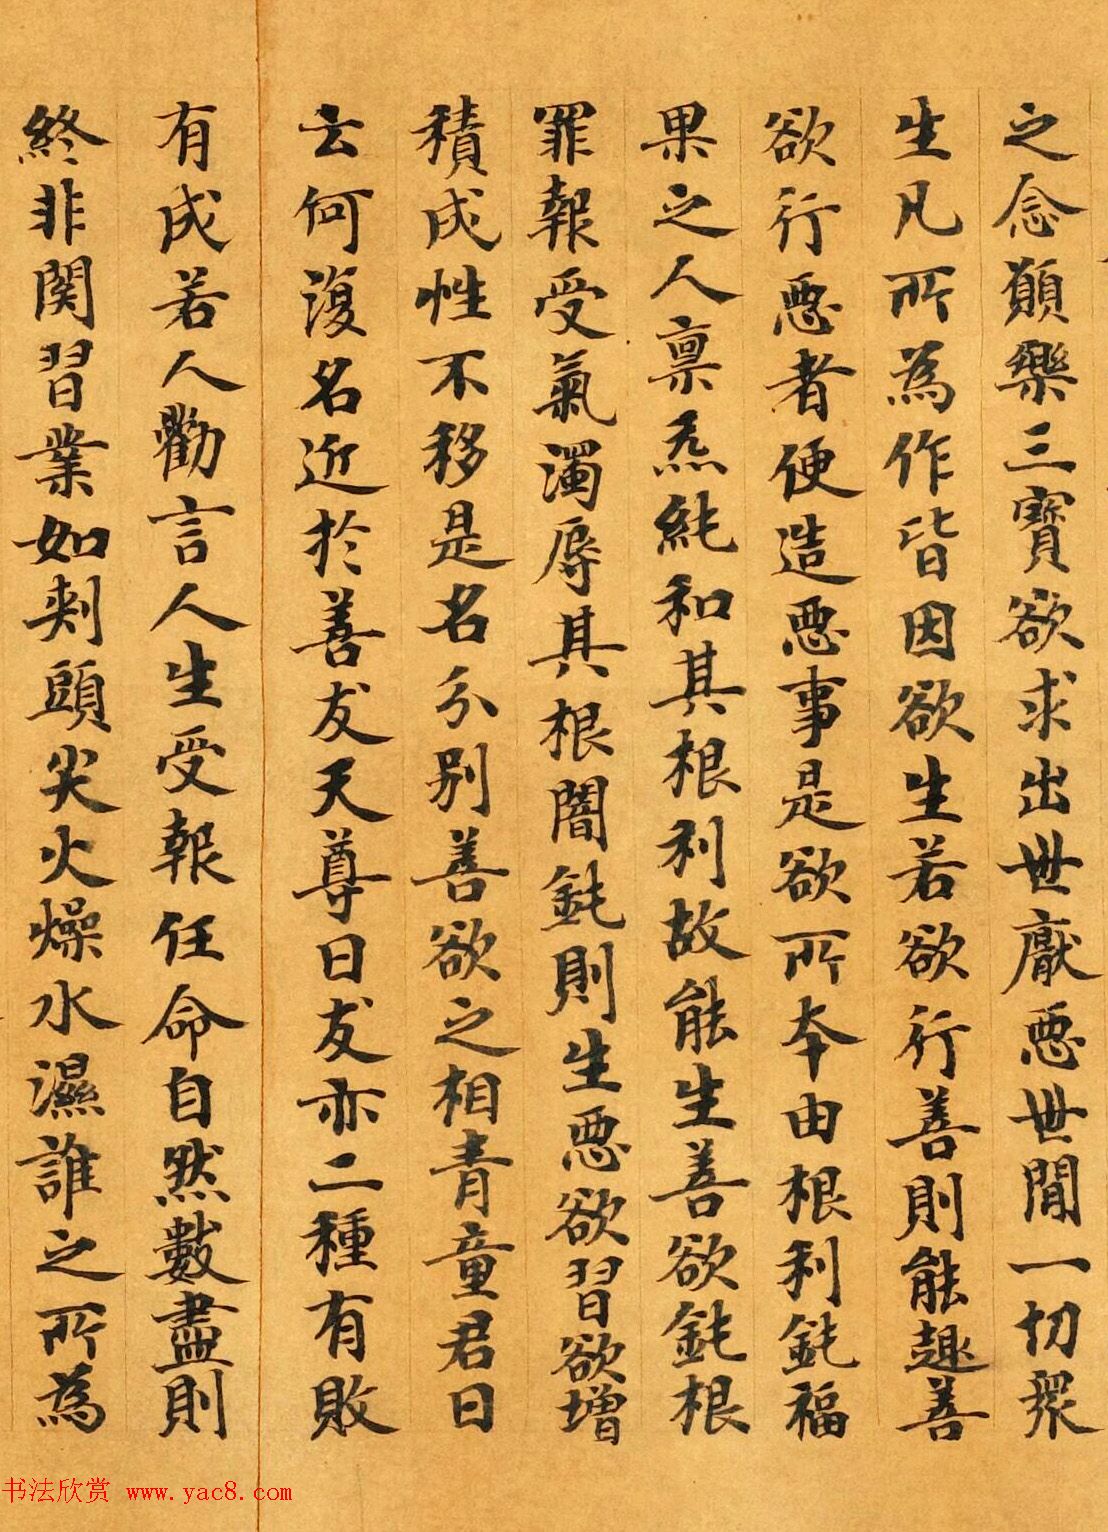 之念願樂三寶欲求出世厭惡世間一切衆
生凡所為作皆因欲生若欲行善則能趣善
欲行惡者便造惡事是欲所本由根利鈍福
果之人稟炁純和其根利故能生善欲鈍根
罪報受氣濁辱其根闇鈍則生惡欲習欲增
積成性不移是名分別善欲之相青童君曰
云何復名近於善友天尊曰友亦二種有敗
有成若人勸言人生受報任命自然數盡則
終非関習業如刾頭尖火燥水濕誰之所為
书法欣赏 www.yac8.com